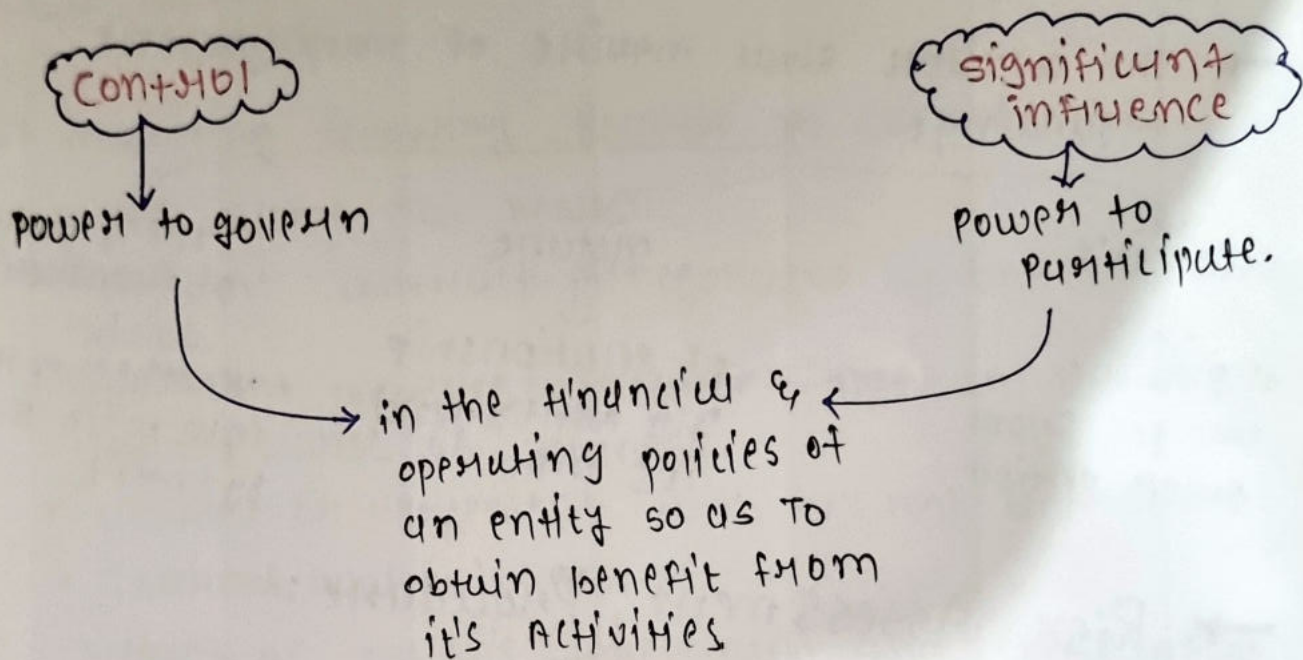 Control
significant
influence
power to govern
power to
participate.
in the financial &
operating policies of
an entity so as To
obtain benefit from
it's Activities